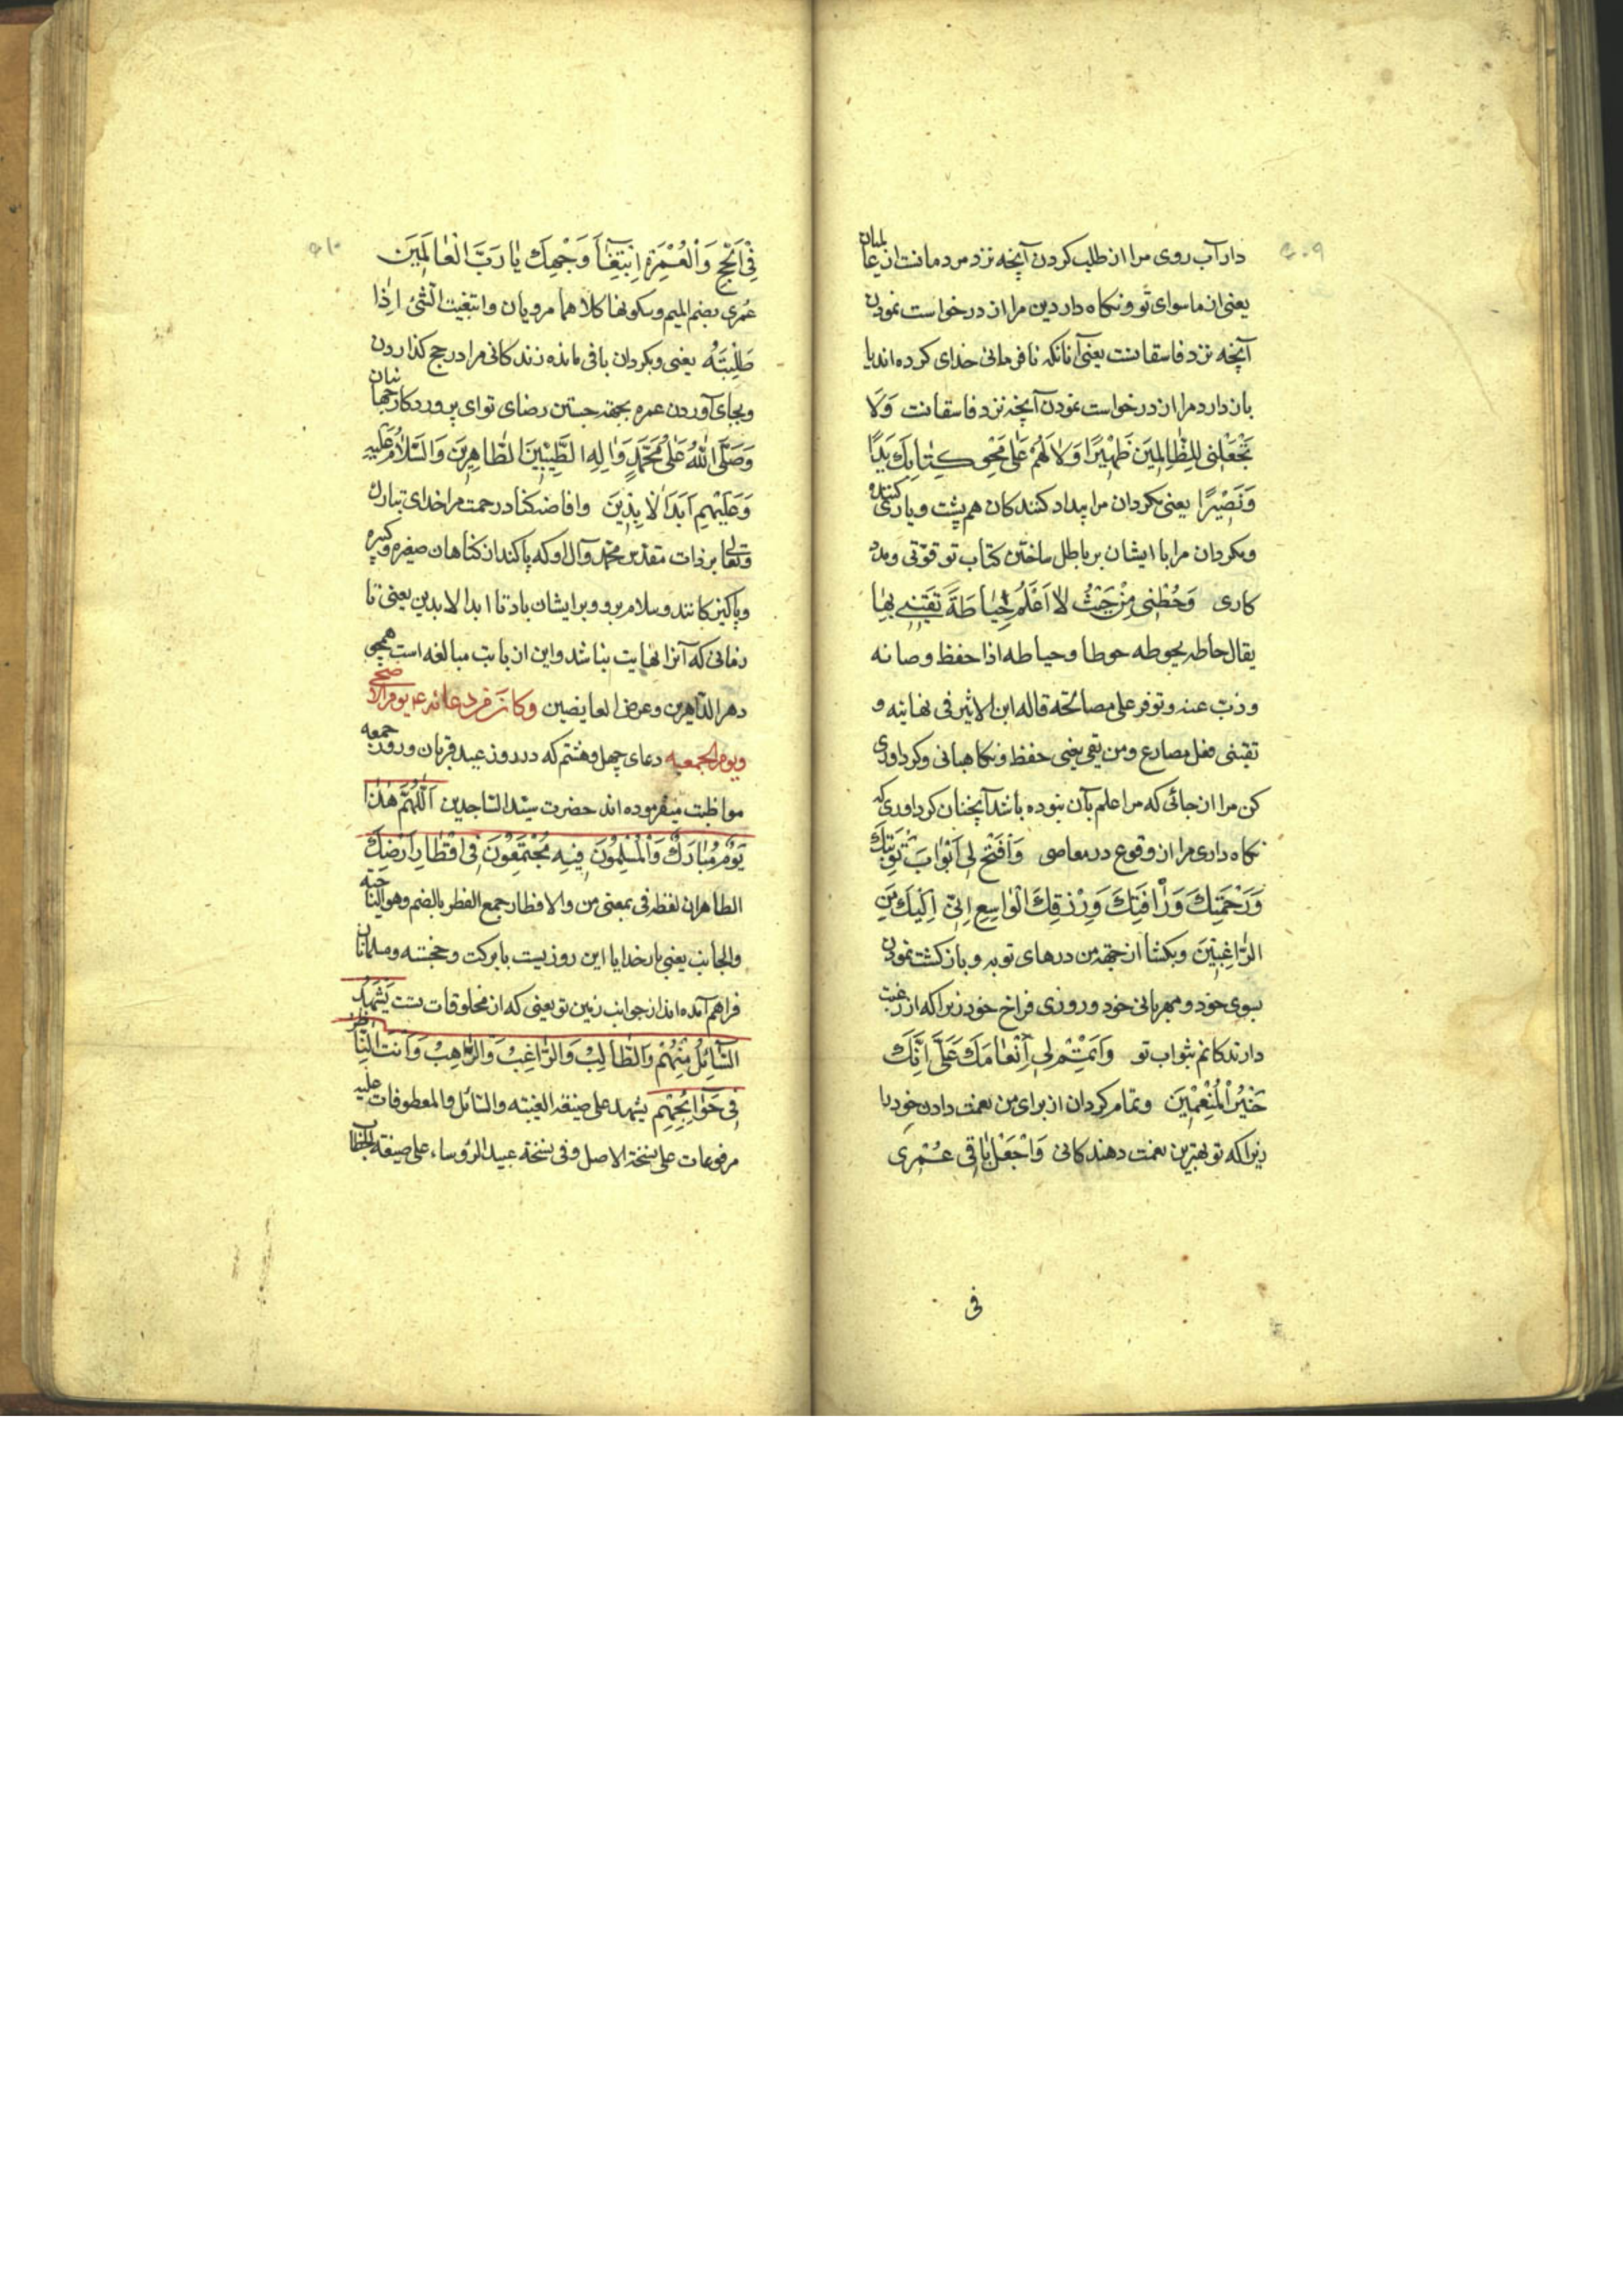 ۵۰۹
دار آب روی مرا از طلب کردن آنچه نزد مردمانت از عالمیان
یعنی از ماسوای تو و نکاه دار دین مرا از درخواست نمودن
آنچه نزد فاسقانت یعنی آنانکه نافرمانی خدای کرده اند یا
باز دارد مرا از درخواست نمودن آنچه نزد فاسقانت وَلَا
تَجْعَلْنِی لِلظّالِمِینَ ظَهِیْرًا وَلَا لَهُمْ عَلٰی مَحْوِ کِتَابِكَ یَدًا
وَنَصِیْرًا یعنی مکردان مرا بیداد کنندکان هم پشت و یاری کننده
و مکردان مرا با ایشان بر باطل ساختن کتاب تو قوّتی و مدد
کاری وَحُطْنِی مِنْ حَیْثُ لَا اَعْلَمُ حِیَاطَةً تَقِیْنِی بِهَا
یقال حاطه یحوطه حوطا و حیاطه اذا حفظ و صانه
و ذبّ عنه و توفر علی مصالحته قاله ابن الاثیر فی نهایته و
تقینی فعل مضارع و من تقی یعنی حفظ و نکاهبانی و کرداوری
کن مرا از جائی که مرا علم بآن نبوده باشد آنچنان کرداوری که
نکاه داری مرا از وقوع در معاصی وَافْتَحْ لِی اَبْوَابَ تَوْبَتِكَ
وَرَحْمَتِكَ وَرَأْفَتِكَ وَرِزْقِكَ الْوَاسِعِ اِنِّی اِلَیْكَ مِنَ
الرَّاغِبِیْنَ و بکشا از جهة من درهای توبه و باز کشت نمودن
بسوی خود و مهربانی خود و روزی فراخ خود زیرا که از رغبت
دارندکانم بثواب تو وَاَتْمِمْ لِی اِنْعَامَكَ عَلَیَّ اِنَّكَ
خَیْرُ الْمُنْعِمْیِنَ و تمام کردان از برای من نعمت دادن خود را
زیرا که تو بهترین نعمت دهندکانی وَاجْعَلْ بَاقِی عُمْرِی
فی
۵۱۰
فِی الْحَجِّ وَالْعُمْرَةِ ابْتِغَاءَ وَجْهِكَ یَا رَبَّ الْعَالَمِیَن
عُمری بضم المیم و سکونها کلاهما مرویان و ابتغیت الشّئ اِذَا
طَلَبْتَهُ یعنی و بکردان باقی مانده زندکانی مرا در حج کذاردن
و بجای آوردن عمره بجهة جستن رضای تو ای پروردکار جهانیان
وَصَلَّی اللّٰهُ عَلٰی مُحَمَّدٍ وَاٰلِهِ الطَّیِّبِیْنَ الطَّاهِرِیَن وَالسَّلَامُ عَلَیْهِ
وَعَلَیْهِمِ اَبَدَ الْاٰبِدِیَن و افاضه کناد رحمت مرا خدای تبارك
و تعالی بر ذات مقدس محمد و آل او که پاکند از کناهان صغیره و کبیره
و پاکیزکانند و سلام بر او و بر ایشان باد تا ابد الابدین یعنی تا
زمانی که آنرا نهایت نباشد و این از بابت مبالغه است همچو
دهر الداهرین و عوض العایضین وکان من دعائه ع یوم الاضحی
ویوم الجمعه دعای چهل و هشتم که در روز عید قربان و روز جمعه
مواظبت میفرموده اند حضرت سیّد السّاجدین اَللّٰهُمَّ هٰذَا
یَوْمٌ مُبَارَكٌ وَالْمُسْلِمُونَ فِیْهِ مُجْتَمِعُوْنَ فِی اَقْطَارِ اَرْضِكَ
الظاهر ان لفظه فی بمعنی من و الاقطار جمع القطر بالضم و هو الناحیه
و الجانب یعنی بار خدایا این روزیست با برکت و خجسته و مسلمانان
فراهم آمده اند از جوانب زمین تو یعنی که از مخلوقات تست یَشْهَدُ
السَّائِلُ مِنْهُمْ وَالطَّالِبُ وَالرَّاغِبُ وَالرَّاهِبُ وَاَنْتَ النَّاظِرُ
فِی حَوَائِجِهِمْ یشهد علی صیغه الغیبته و السّائل و المعطوفات علیه
مرفوعات علی نسخة الاصل و فی نسخة عمید الرؤساء علی صیغة الخطاب